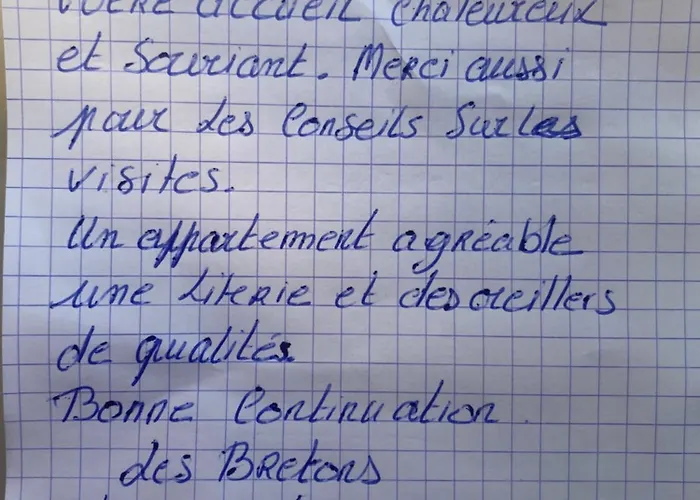 votre accueil chaleureux
et souriant. Merci aussi
pour les Conseils Sur les
visites.
Un appartement agréable
une literie et des oreillers
de qualités.
Bonne Continuation.
des Bretons